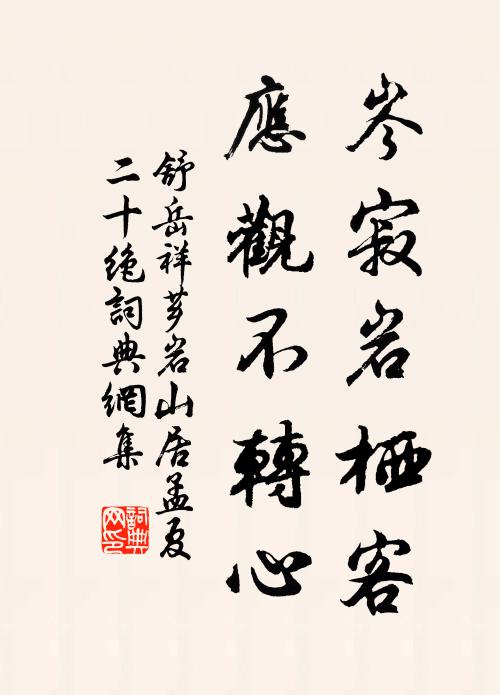 岑寂岩栖客
應觀不轉心
舒岳祥芗岩山居孟夏
二十絶詞典網集
詞典网印